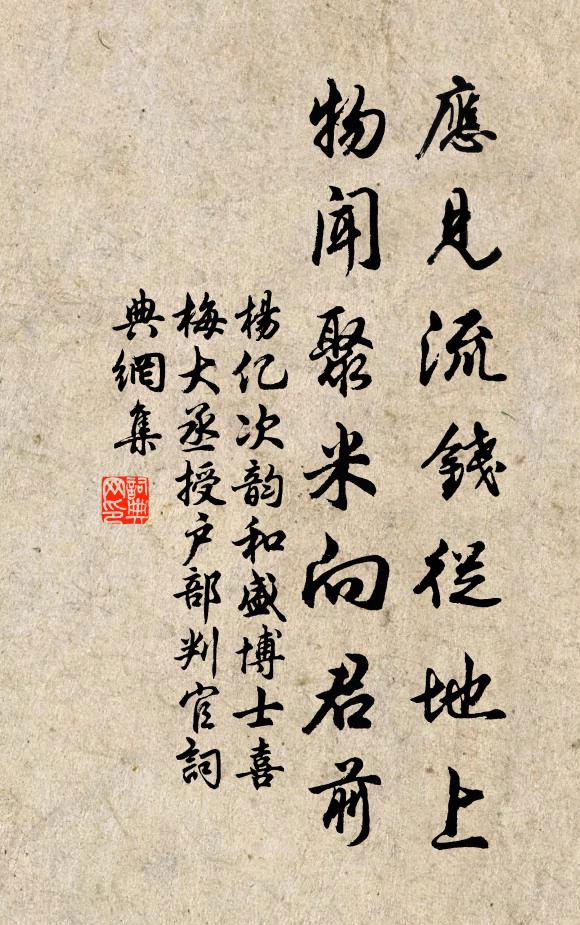 應見流錢從地上
物聞聚米向君前
楊億次韵和盛博士喜
梅大丞授户部判官詞
典網集
詞典網印